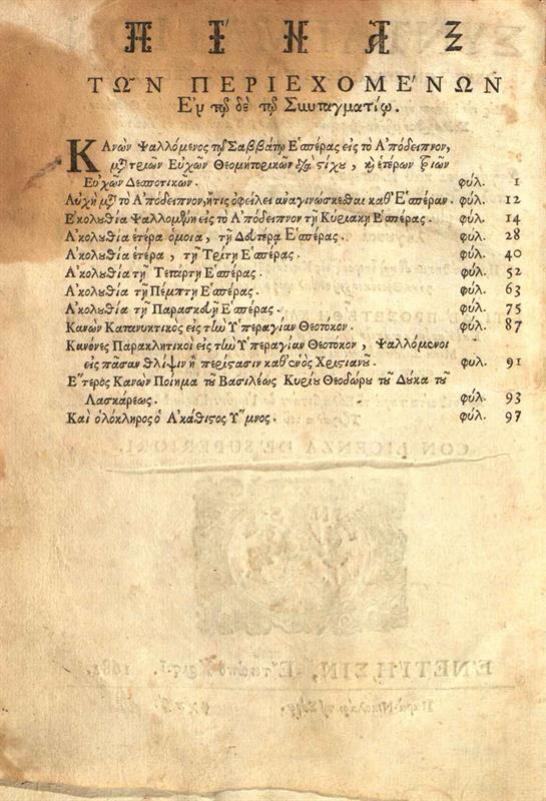 ΠΙΝΑΞ
ΤΩ͂Ν ΠΕΡΙΕΧΟΜΕ΄ΝΩΝ
Εν τῷ δὲ τῷ Συνταγματίῳ.
ΚΑνὼν Ψαλλόμενος τῷ Σαββάτῳ Εσπέρας εἰς τὸ Απόδειπνον,
μετὰ τριῶν Ευχῶν Θεομητορικῶν, καὶ ἑτέρων τριῶν
Ευχῶν Δεσποτικων. φύλ. 1
Λὐχὴ μετὰ τὸ Απόδειπνον, ἥτις ὀφείλει ἀναγινώσκεσθαι καθ' Εσπέραν. φύλ. 12
Εκολουθία Ψαλλομένη εἰς τὸ Απόδειπνον τῇ Κύριακῇ Εσπέρας. φύλ. 14
Ακολουθία ἑτέρα ὅμοια, τῇ Δευτέρᾳ Εσπέρας. φύλ. 28
Ακολουθία ἑτέρα, τῇ Τρίτῃ Εσπέρας. φύλ. 40
Ακολουθία τῇ Τετάρτῃ Εσπέρας. φύλ. 52
Ακολουθία τῇ Πέμπτῃ Εσπέρας. φύλ. 63
Ακολουθία τῇ Παρασκευῇ Εσπέρας. φύλ. 75
Κανὼν Κατανυκτικὸς εἰς τὴν Υπεραγίαν Θεοτόκον. φύλ. 87
Κανόνες Παρακλητικοὶ εἰς τὴν Υπεραγίαν Θεοτόκον, Ψαλλόμενοι
εἰς πᾶσαν θλίψιν ἢ περίστασιν καθ' ἑνὸς Χριστιανοῦ. φυλ. 91
Ε῞τερος Κανὼν Ποίημα τοῦ Βασιλέως Κυρίου Θεοδώρου τοῦ Δύκα τοῦ
Λασκάρεως. φύλ. 93
Καὶ ὁλόκληρος ὁ Ακάθιστος Υ῞μνος. φύλ. 97